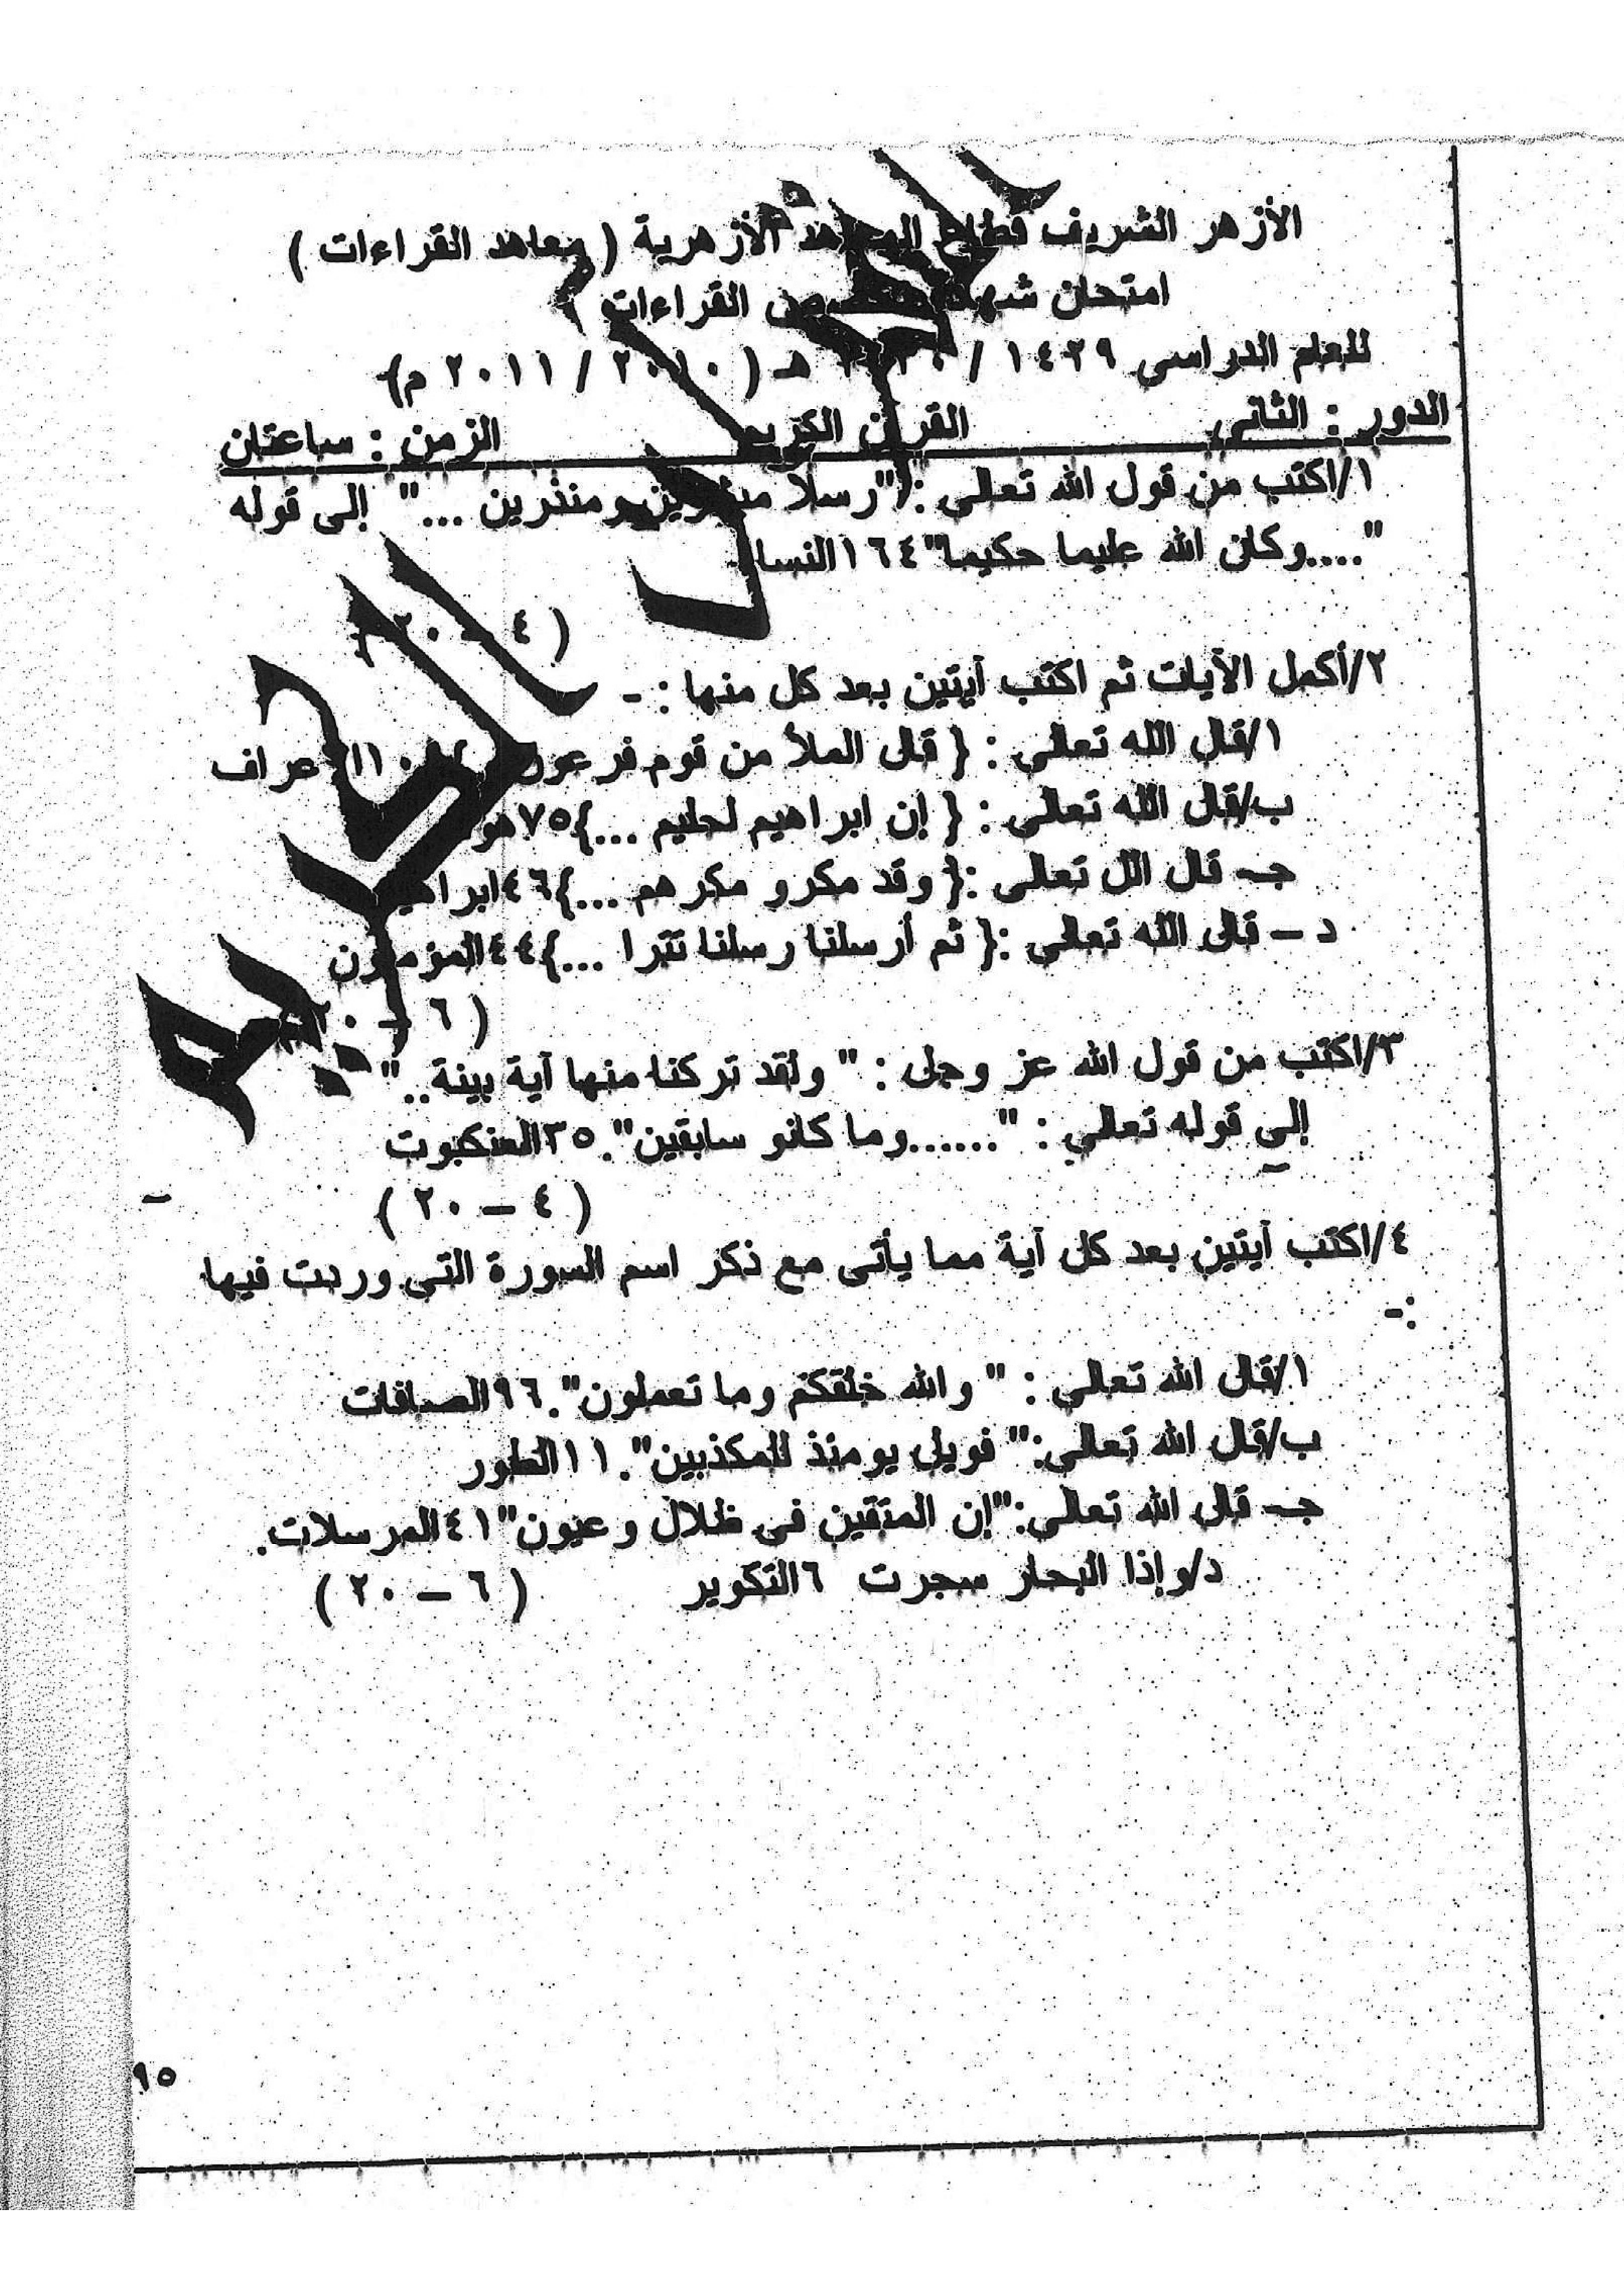 الأزهر الشريف قطاع المعاهد الأزهرية ( معاهد القراءات )
امتحان القراءات
للعام الدراسى ١٤٢٩ / هـ ( ٢٠١٠ / ٢٠١١ م)
الدور : الثانى القرآن الكريم الزمن : ساعتان
١/اكتب من قول الله تعالى :"رسلا مبشرين ومنذرين ..." إلى قوله
"....وكان الله عليما حكيما" ١٦٤
( ٤ – ٢٠ )
٢/أكمل الآيات ثم اكتب آيتين بعد كل منها : -
١/قال الله تعالى : { قال الملأ من قوم فرعون
ب/قال الله تعالى : { إن ابراهيم لحليم ...}٧٥
جـ قال الل تعالى :{ وقد مكرو مكرهم ...}٤٦
د – قال الله تعالى :{ ثم أرسلنا رسلنا تترا ...}٤٤المؤمنون
( ٦ – ٢٠ )
٣/اكتب من قول الله عز وجل : " ولقد تركنا منها آية بينة.."
إلي قوله تعالي : "......وما كانو سابقين".٣٥العنكبوت
( ٤ – ٢٠ )
٤/اكتب آيتين بعد كل آية مما يأتى مع ذكر اسم السورة التى وردت فيها
:-
١/قال الله تعالى : " والله خلقكم وما تعملون".٩٦الصافات
ب/قال الله تعالى:" فويل يومئذ للمكذبين".١١الطور
جـ قال الله تعالى:"إن المتقين فى ظلال وعيون"٤١المرسلات.
د/وإذا البحار سجرت ٦التكوير ( ٦ – ٢٠ )
٩٥